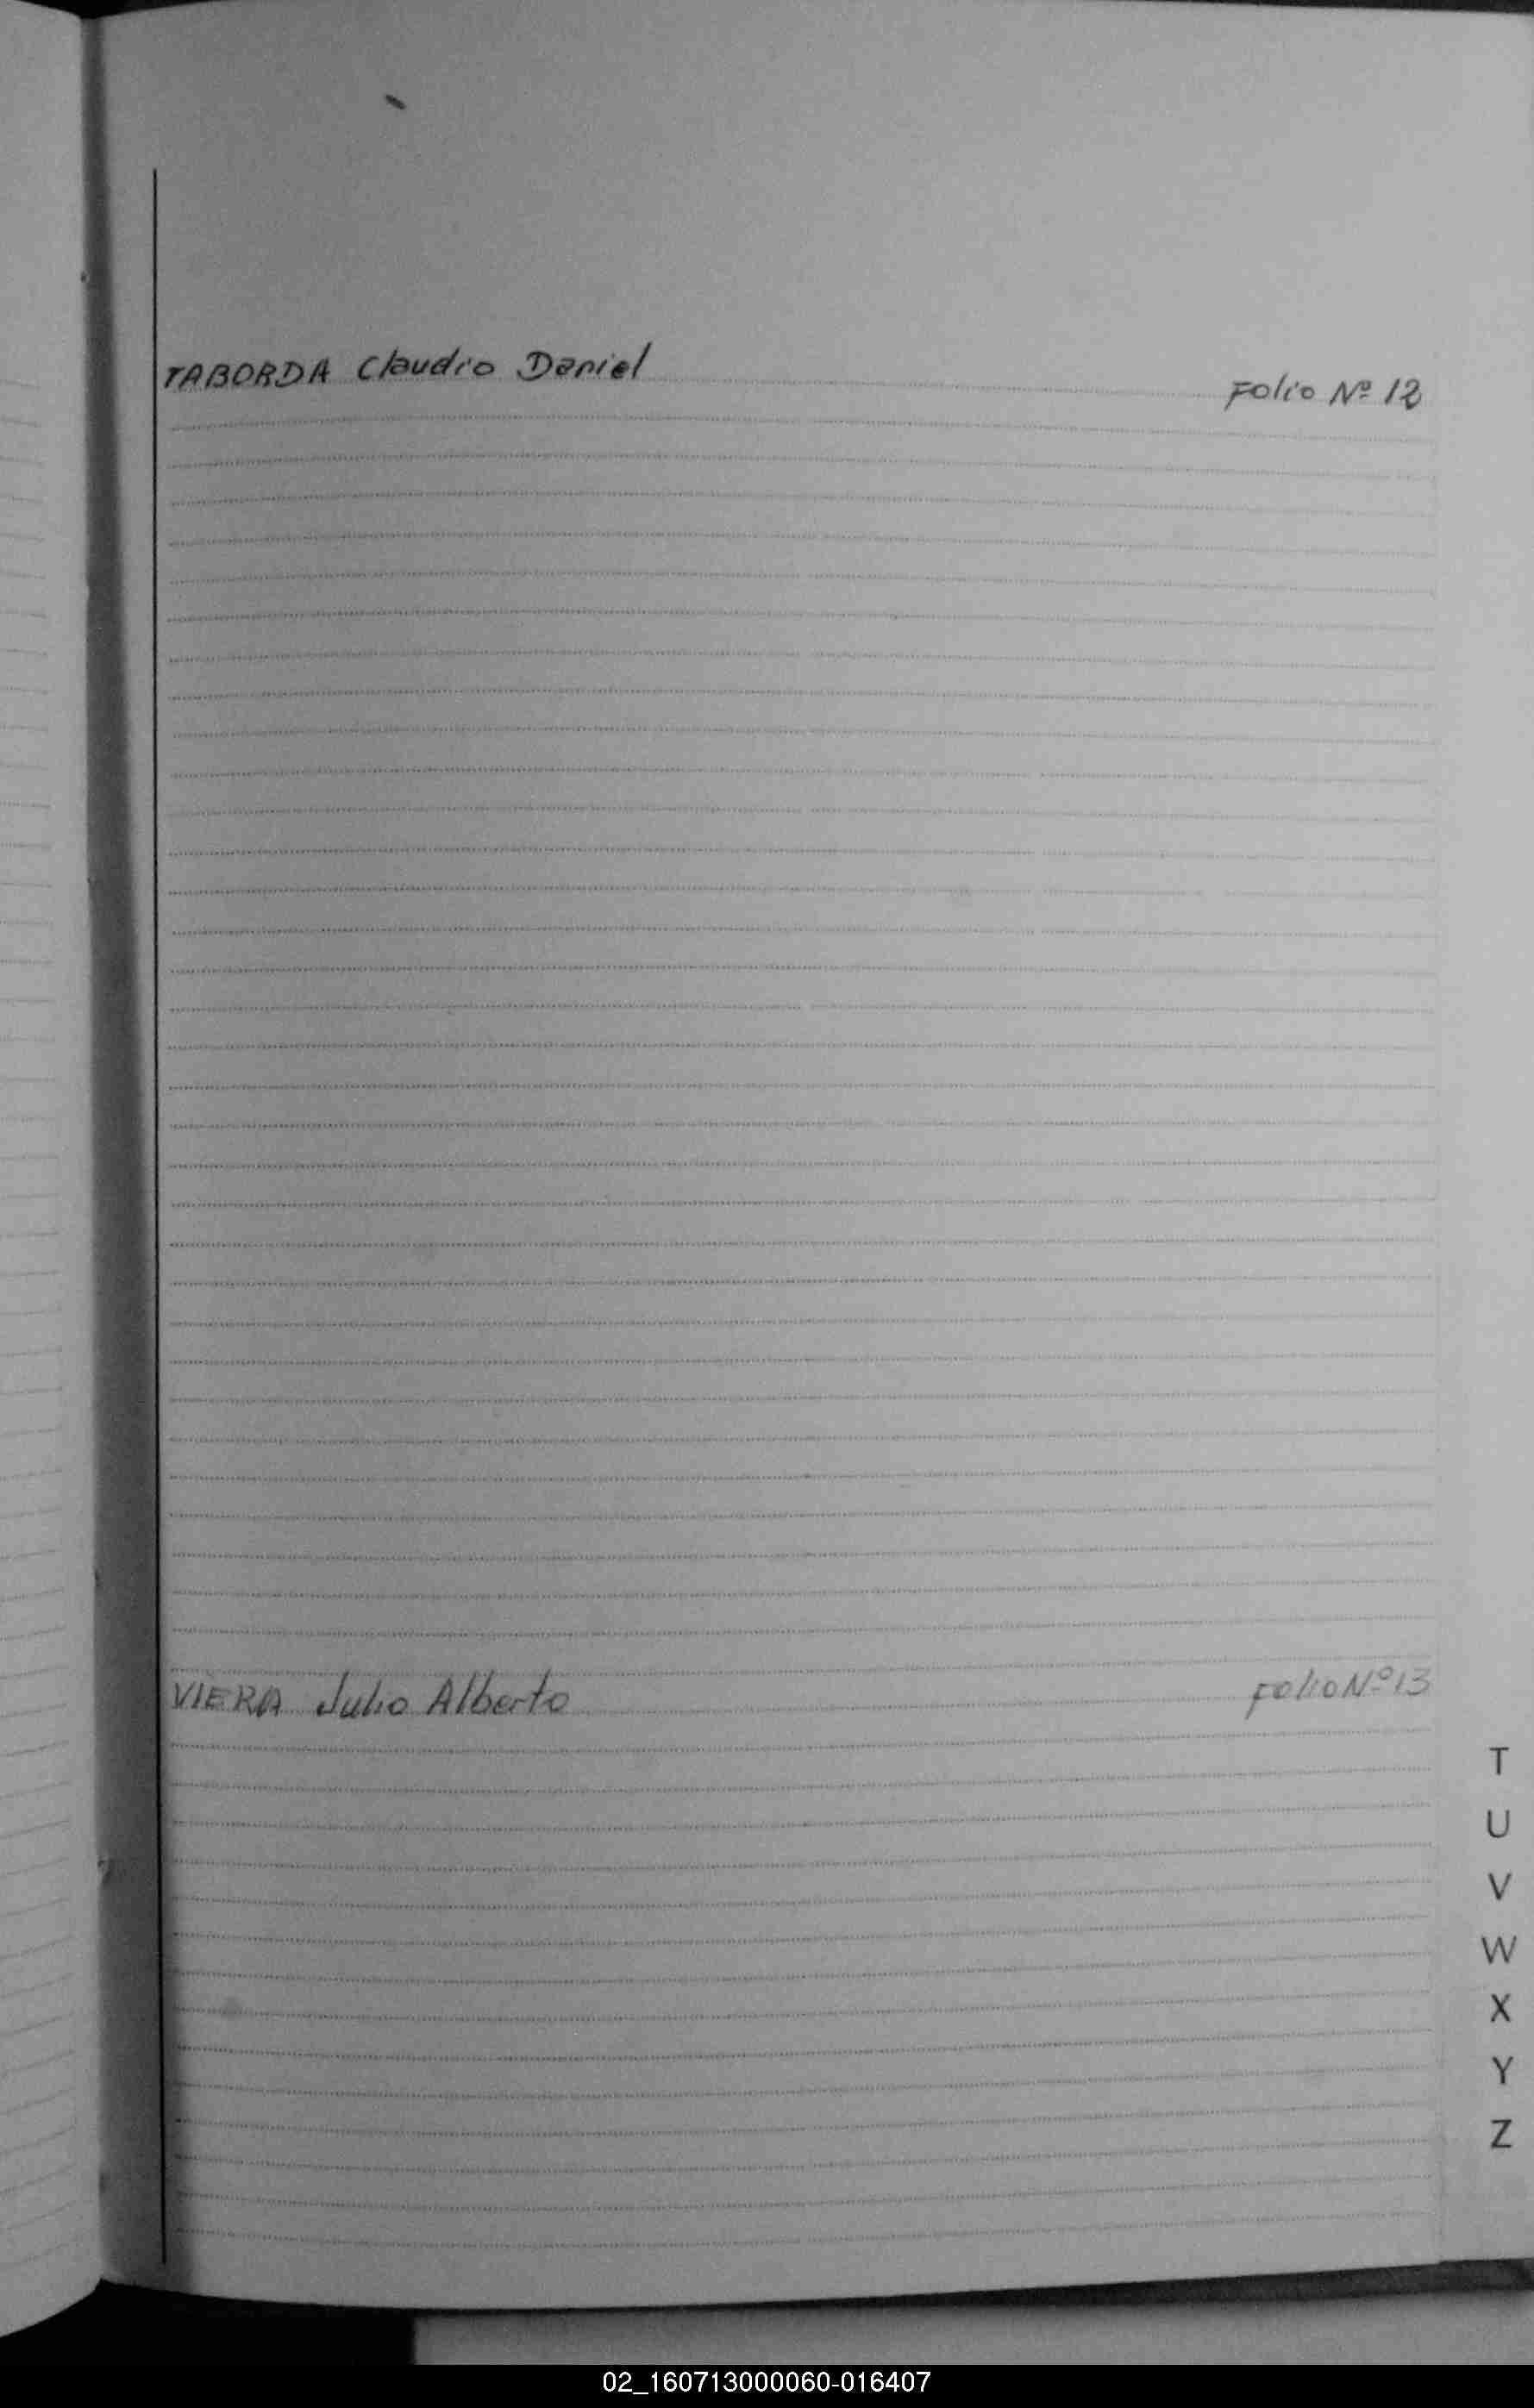 TABORDA Claudio Daniel Folio Nº 12
VIERA Julio Alberto Folio Nº 13
T
U
V
W
X
Y
Z
02_160713000060-016407